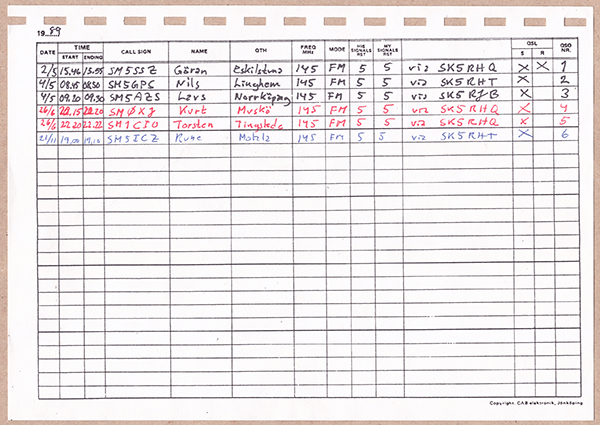 19 89
DATE TIME START ENDING CALL SIGN NAME QTH FREQ MHz MODE HIS SIGNALS RST MY SIGNALS RST QSL S R QSO NR.
2/5 15.46 15.55 SM5SSZ Göran Eskilstuna 145 FM 5 5 via SK5RHQ X X 1
4/5 08.45 08.50 SM5GPS Nils Linghem 145 FM 5 5 via SK5RHT X 2
4/5 09.30 09.50 SM5AZS Lars Norrköping 145 FM 5 5 via SK5RJB X 3
26/6 22.15 22.20 SMØXJ Kurt Muskö 145 FM 5 5 via SK5RHQ X 4
26/6 22.20 22.22 SM1CIO Torsten Tingstäde 145 FM 5 5 via SK5RHQ X 5
21/11 19.00 19.10 SM5ICZ Rune Motala 145 FM 5 5 via SK5RHT X 6
Copyright. CAB elektronik, Jönköping